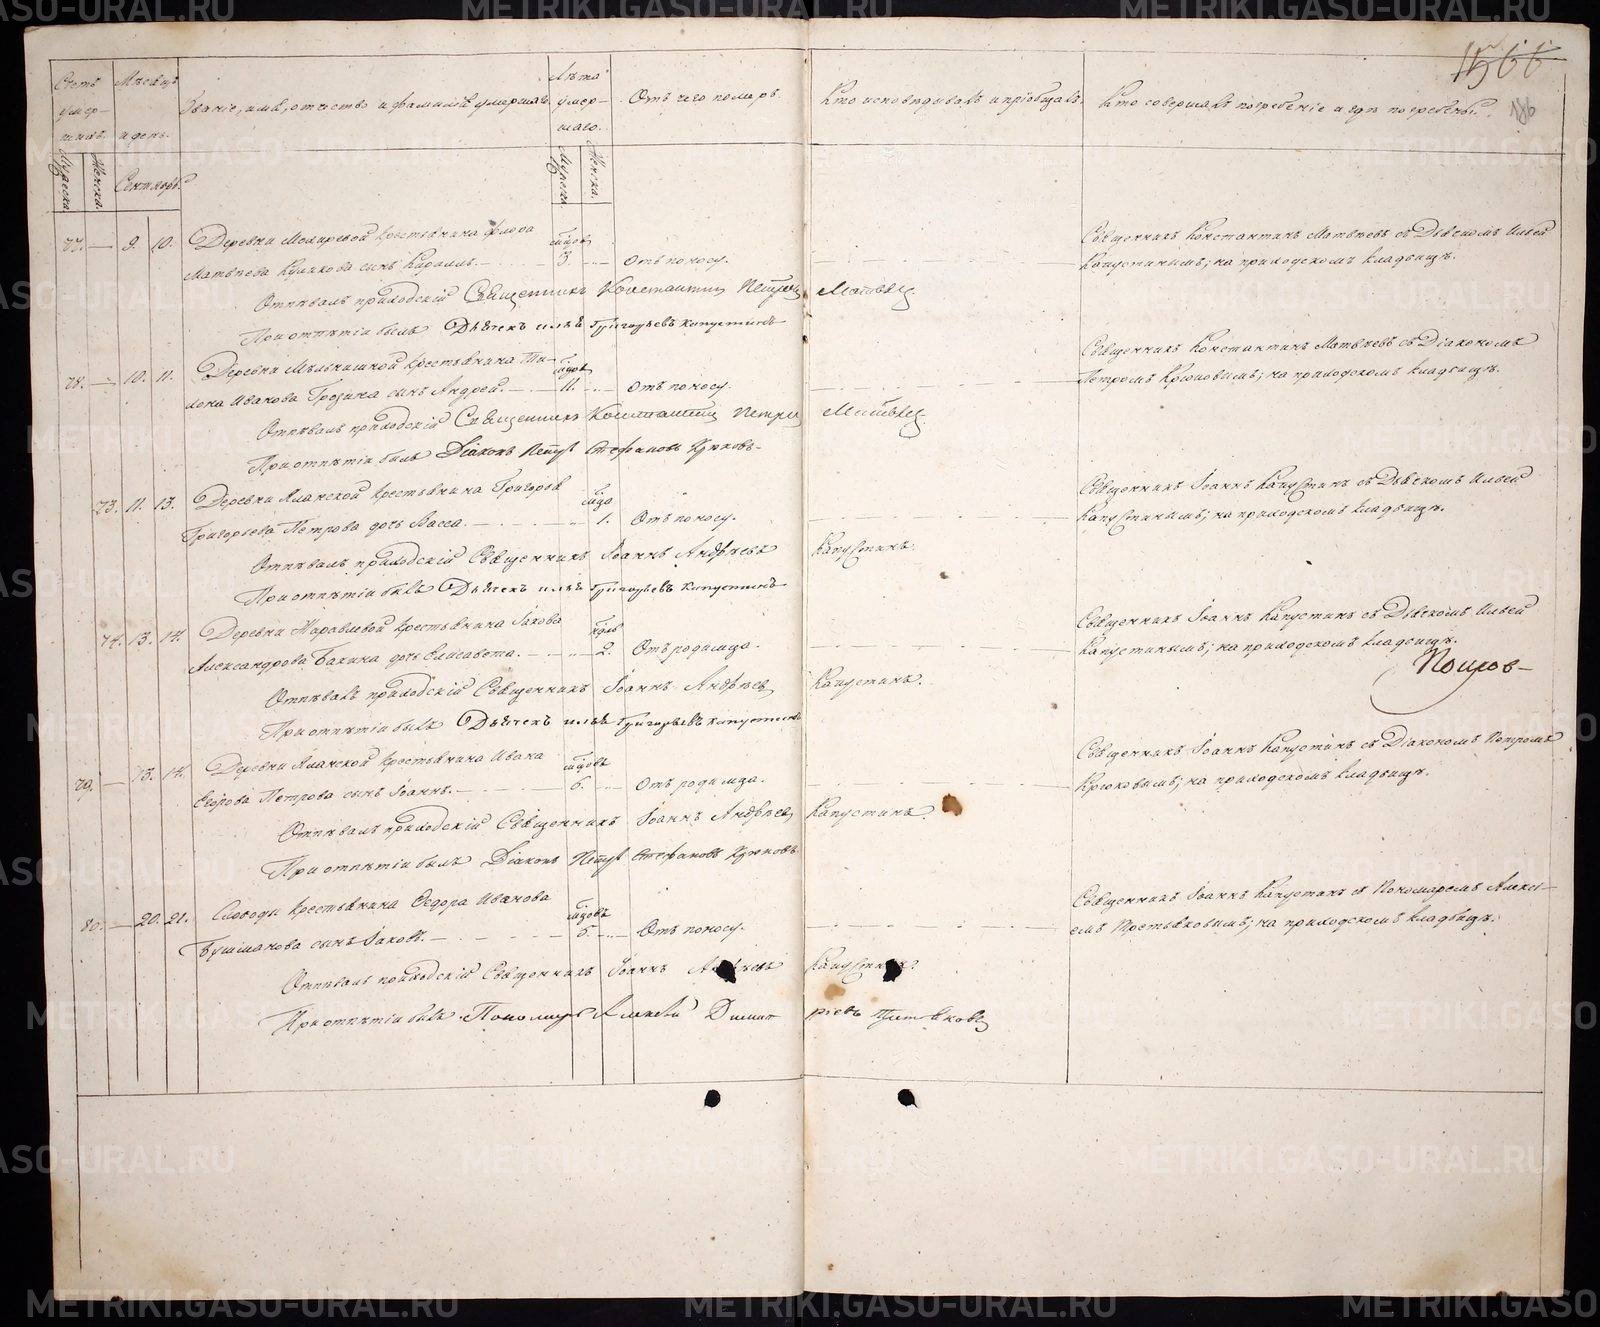 1566
186
Счетъ умершихъ.
Мѣсяцъ и день.
Званіе, имя, отчество и фамилія умершаго.
Лѣта умершаго.
Отъ чего померъ.
Кто исповѣдывалъ и пріобщалъ.
Кто совершалъ погребеніе и гдѣ погребены.
Мужеска. Женска.
Сентябрь.
Мужеска. Женска.
77. — 9. 10. Деревни крестьянина Флора
Матвѣева Куликова сынъ Кирилъ. — мцовъ 3. — Отъ поносу.
Священникъ Константинъ Матвѣевъ съ Дьячкомъ Ильей
Капустинымъ; на приходскомъ кладбищѣ.
Отпѣвалъ приходскій Священникъ Константин Петров Матвѣев
При отпѣтіи былъ Дьячекъ Илья Григорьевъ Капустинъ
78. — 10. 11. Деревни крестьянина Ти-
хона Иванова сынъ Андрей. — мцовъ 11. — Отъ поносу.
Священникъ Константинъ Матвѣевъ съ Діакономъ
Петромъ Крюковымъ; на приходскомъ кладбищѣ.
Отпѣвалъ приходскій Священникъ Константин Петров Матвѣев
При отпѣтіи былъ Діаконъ Петръ Стефановъ Крюковъ
73. 11. 13. Деревни Аланской крестьянина Григорья
Григорьева Петрова дочь Васса. — мца 1. Отъ поносу.
Священникъ Іоаннъ Капустинъ съ Дьячкомъ Ильей
Капустинымъ; на приходскомъ кладбищѣ.
Отпѣвалъ приходскій Священникъ Іоаннъ Андреевъ Капустинъ.
При отпѣтіи былъ Дьячекъ Илья Григорьевъ Капустинъ
74. 13. 14. Деревни Журавлевой крестьянина Іакова
Александрова Бахина дочь Елисавета. — ндль 2. Отъ родимца.
Священникъ Іоаннъ Капустинъ съ Дьячкомъ Ильей
Капустинымъ; на приходскомъ кладбищѣ.
Отпѣвалъ приходскій Священникъ Іоаннъ Андреевъ Капустинъ.
При отпѣтіи былъ Дьячекъ Илья Григорьевъ Капустинъ
79. — 13. 14. Деревни Аланской крестьянина Ивана
Егорова Петрова сынъ Іоаннъ. — мцовъ 6. — Отъ родимца.
Священникъ Іоаннъ Капустинъ съ Діакономъ Петромъ
Крюковымъ; на приходскомъ кладбищѣ.
Отпѣвалъ приходскій Священникъ Іоаннъ Андреевъ Капустинъ.
При отпѣтіи былъ Діаконъ Петръ Стефановъ Крюковъ
80. — 20. 21. Слободы крестьянина Федора Иванова
Бушманова сынъ Іаковъ. — мцовъ 5. — Отъ поносу.
Священникъ Іоаннъ Капустинъ съ Пономаремъ Алексі-
емъ Третьяковымъ; на приходскомъ кладбищѣ.
Отпѣвалъ приходскій Священникъ Іоаннъ Андреевъ Капустинъ
При отпѣтіи былъ Пономарь Алексѣй Димитріевъ Третьяковъ
METRIKI.GASO-URAL.RU